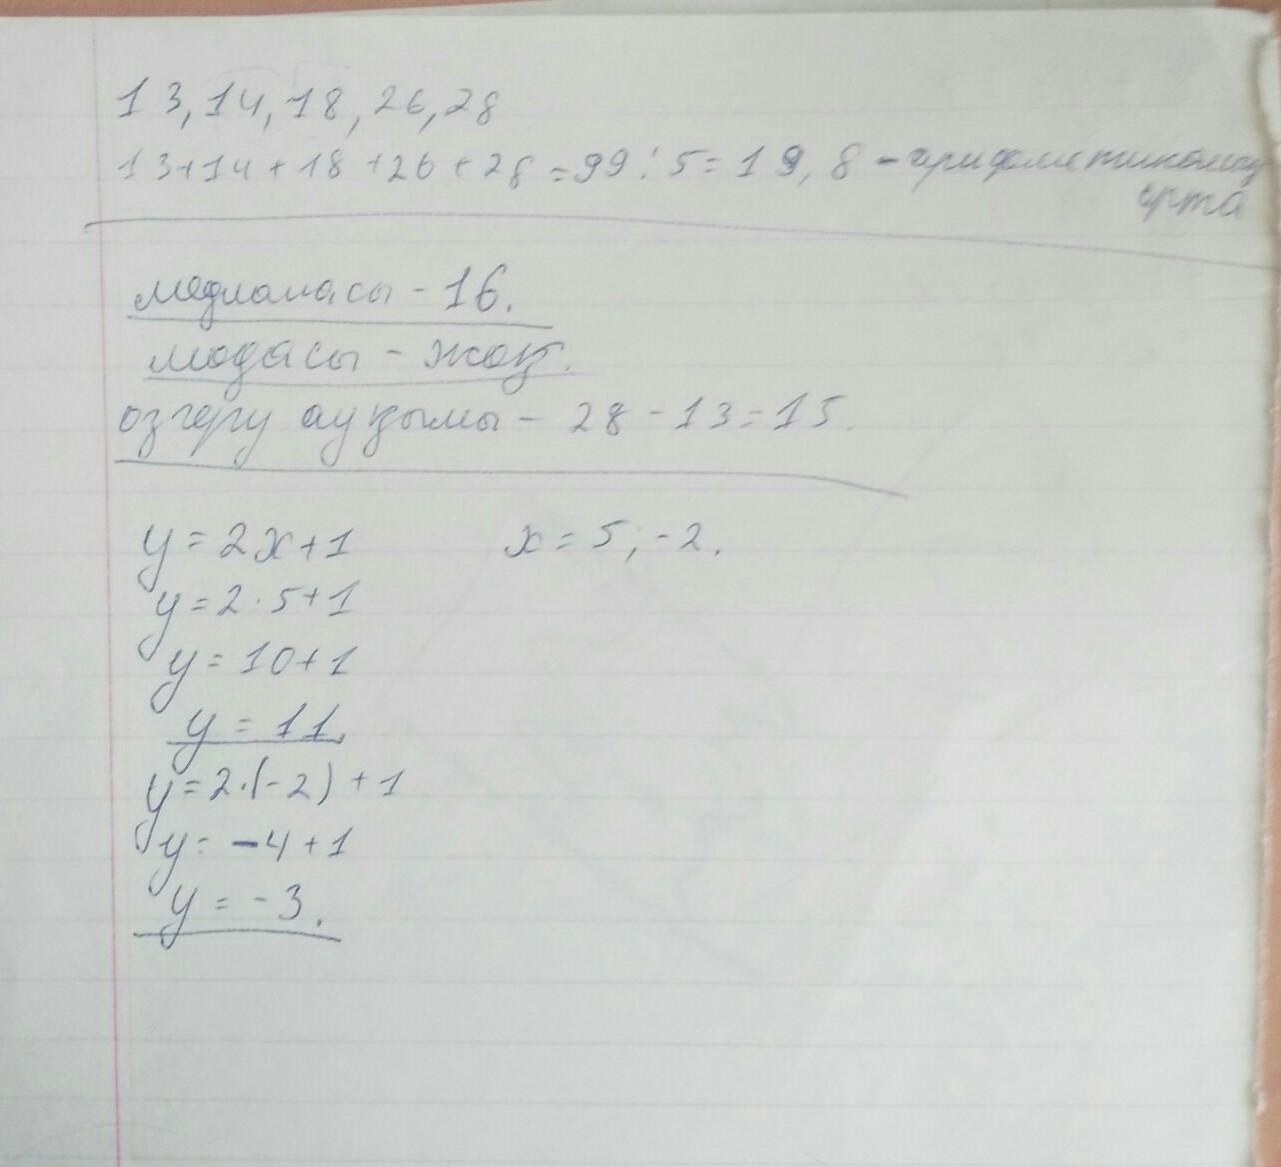 13, 14, 18, 26, 28
13+14+18+26+28=99:5=19,8 - арифметикалық
орта
медианасы - 16.
модасы - жоқ.
озгеру ауқымы - 28-13=15.
y=2x+1 x=5; -2.
y=2·5+1
y=10+1
y=11.
y=2·(-2)+1
y=-4+1
y=-3.